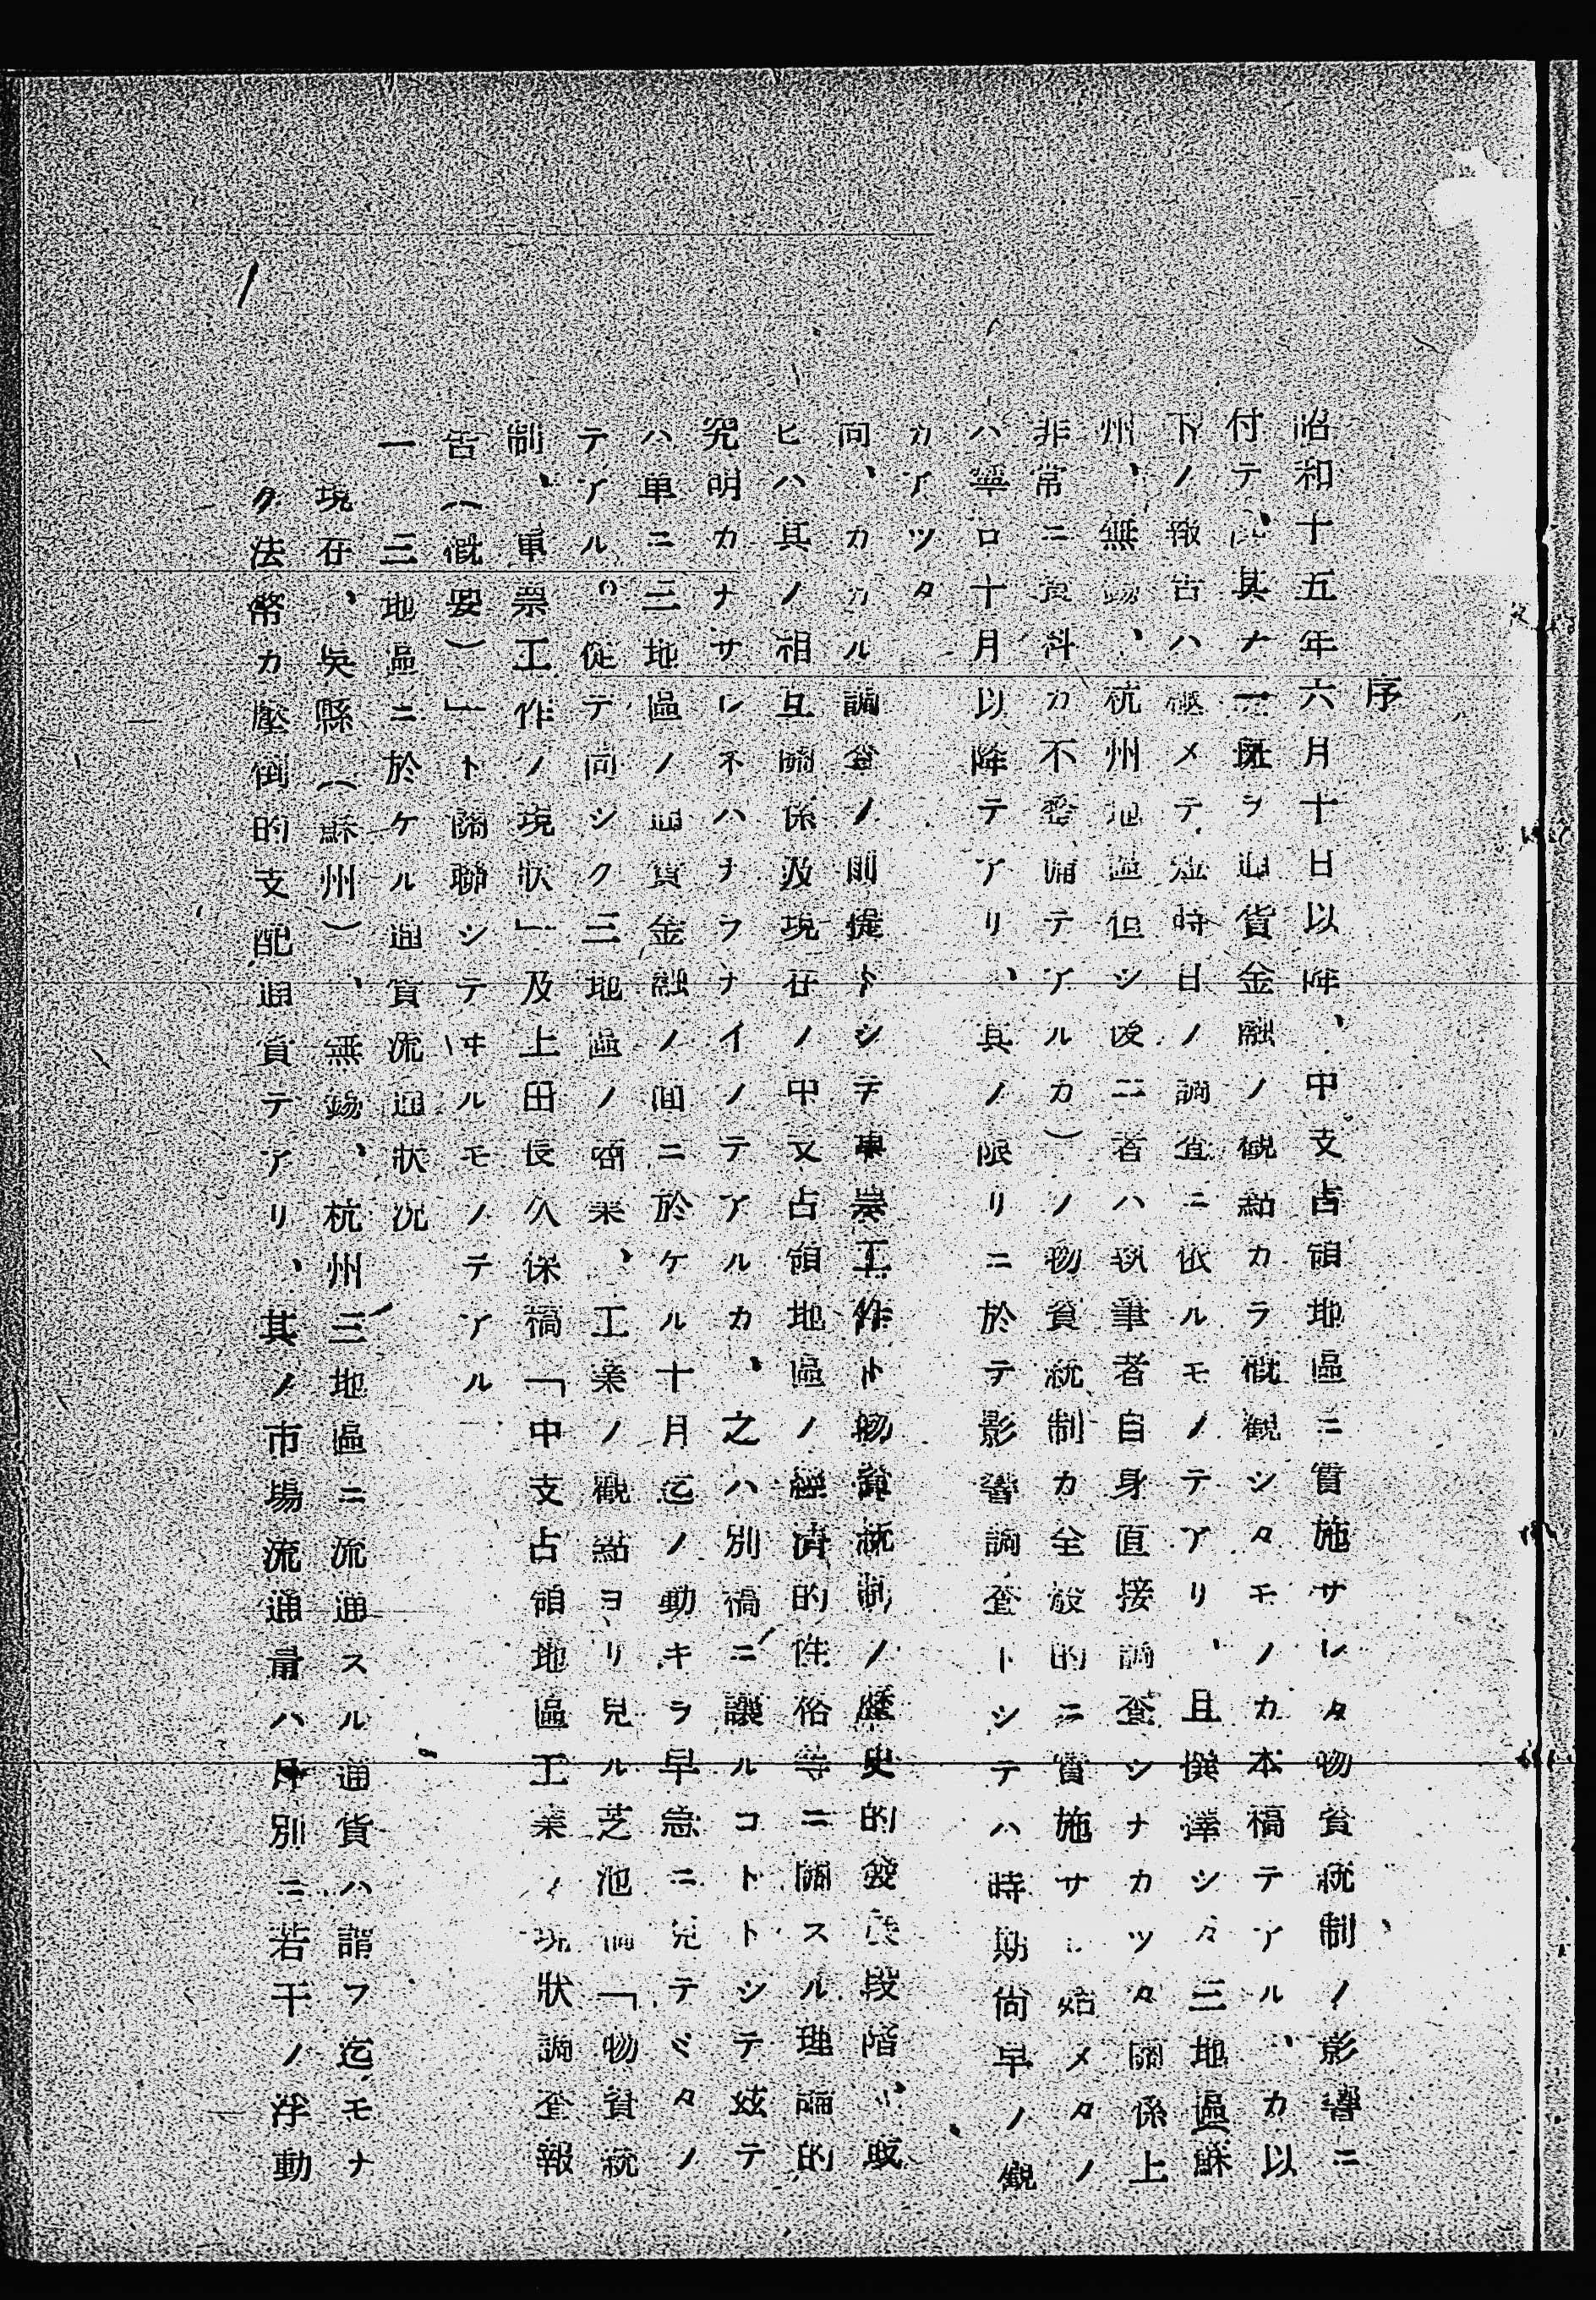 序
昭和十五年六月十日以降、中支占領地區ニ實施サレタ物資統制ノ影響ニ
付テ、其ナ一斑ヲ通貨金融ノ観點カラ概観シタモノカ本稿テアル、カ以
下ノ報告ハ極メテ短時日ノ調査ニ依ルモノテアリ、且撰擇シタ三地區蘇
州、無錫、杭州地區但シ後二者ハ執筆者自身直接調査シナカツタ關係上
非常ニ資料カ不整備テアルカ)ノ物資統制カ全般的ニ實施サレ始メタノ
ハ寧ロ十月以降テアリ、其ノ限リニ於テ影響調査トシテハ時期尚早ノ観
カアツタ
尚、カカル調査ノ前提トシテ軍票工作ト物資統制ノ歴史的發展段階、或
ヒハ其ノ相互關係及現在ノ中支占領地區ノ經濟的性格等ニ關スル理論的
究明カナサレネハナラナイノテアルカ、之ハ別稿ニ讓ルコトトシテ茲テ
ハ單ニ三地區ノ通貨金融ノ面ニ於ケル十月迄ノ動キヲ早急ニ見テミタノ
テアル。従テ同シク三地區ノ商業、工業ノ觀點ヨリ見ル芝池 「物資統
制、軍票工作ノ現状」及上田長久保稿「中支占領地區工業ノ現狀調査報
告(概要)」ト關聯シテヰルモノテアル
一 三地區ニ於ケル通貨流通狀況
現在、吳縣(蘇州)、無錫、杭州三地區ニ流通スル通貨ハ謂フ迄モナ
ク法幣カ壓倒的支配通貨テアリ、其ノ市場流通量ハ月別ニ若干ノ浮動